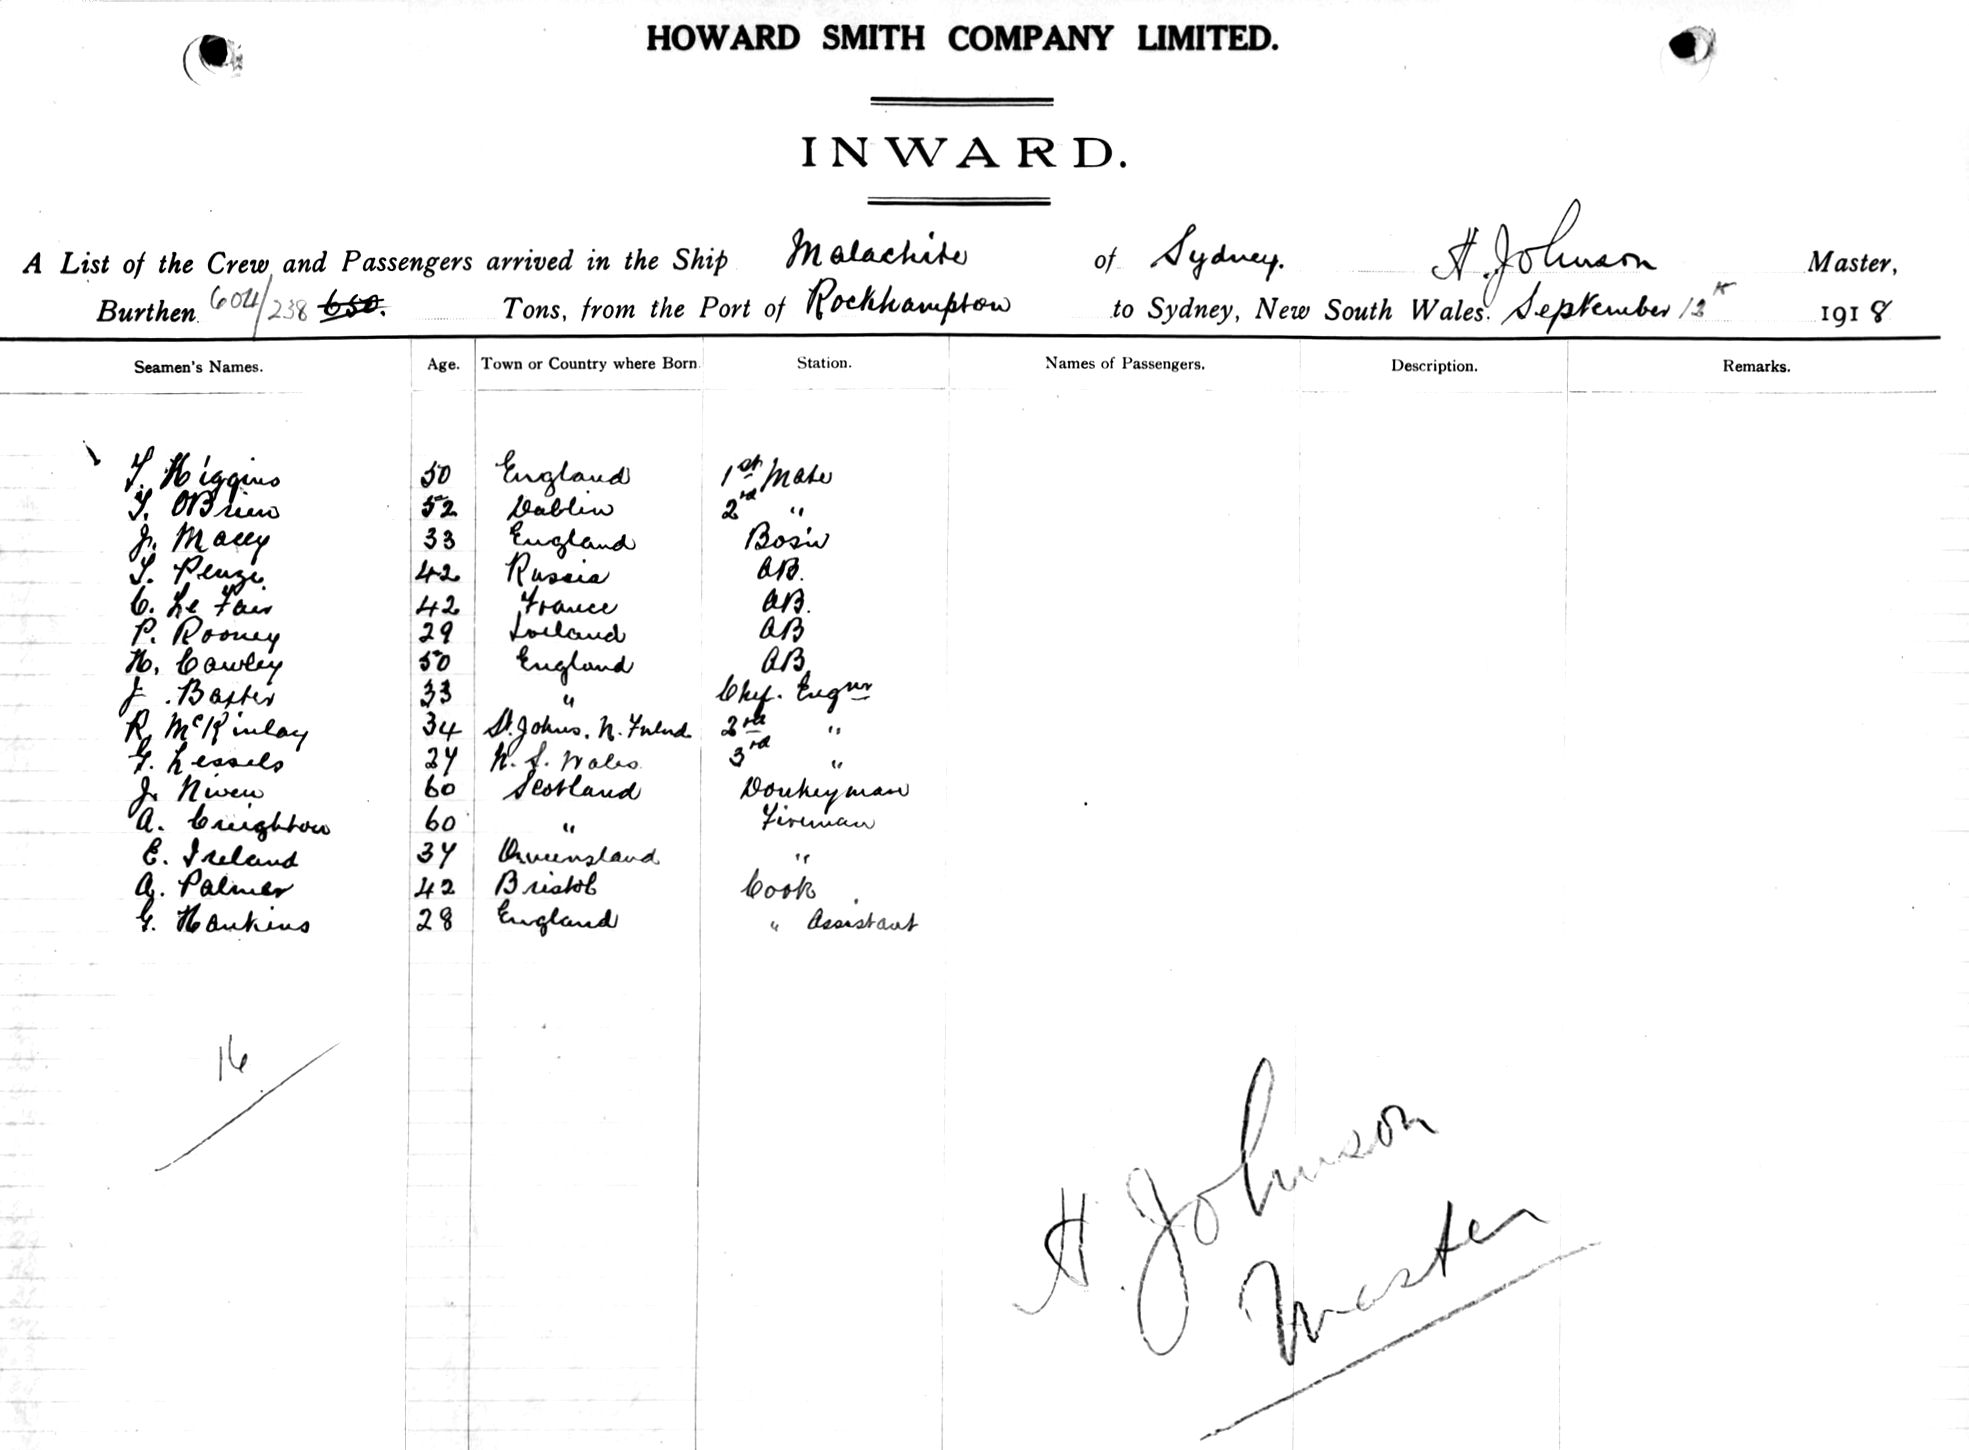 HOWARD SMITH COMPANY LIMITED.
INWARD.
A List of the Crew and Passengers arrived in the Ship Malachite of Sydney. H. Johnson Master,
Burthen 604/238 650. Tons, from the Port of Rockhampton to Sydney, New South Wales. September 12th 1918
Seamen's Names. Age. Town or Country where Born Station. Names of Passengers. Description. Remarks.
T. Higgins 50 England 1st Mate
T. OBrien 52 Dublin 2nd "
J. Macey 33 England Bos'n
42 Russia AB.
C. Le Fair 42 France AB.
P. Rooney 29 Ireland AB
H. Cawley 50 England AB
J. Baxter 33 " Chf. Engnr
R. McKinlay 34 St. Johns, N. Fnlnd 2nd "
G. Lessels 27 N. S. Wales 3rd "
J. Niven 60 Scotland Donkeyman
A. Creighton 60 " Fireman
E. Ireland 37 Queensland "
A. Palmer 42 Bristol Cook
G. Hankins 28 England " Assistant
16
H. Johnson
Master